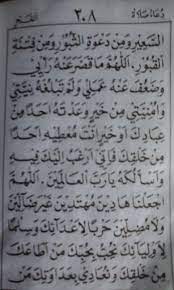 دعاء صلاة ٢٠٨
السعير ومن دعوة الثبور ومن فتنة
القبور اللهم ما قصر عنه رأيي
وضعف عنه عملي ولم تبلغه نيتي
وأمنيتي من خير وعدته أحدا من
عبادك أو خير أنت معطيه أحدا
من خلقك فإني أرغب إليك فيه
وأسألكه يارب العالمين اللهم
اجعلنا هادين مهتدين غير ضالين
ولا مضلين حربا لأعدائك وسلما
لأوليائك نحب بحبك من أطاعك
من خلقك ونعادي بعداوتك من